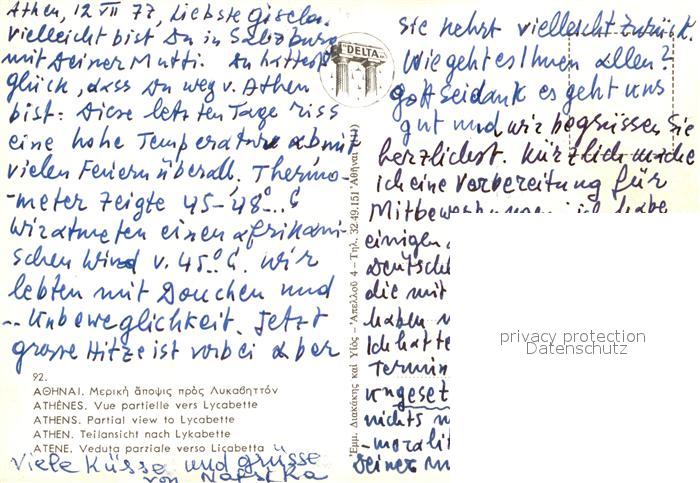 Athen, 12 VII 77, Liebste Gisela.
vielleicht bist Du in Salzburg
mit Deiner Mutti. Du hattest
glück, dass Du weg v. Athen
bist. Diese letzten Tage riss
eine hohe Temperatur ab mit
vielen Feuern überall. Thermo-
-meter zeigte 45-48°.. C
Wir atmeten einen afrikani-
schen Wind v. 45° C. Wir
lebten mit Douchen und
... Unbeweglichkeit. Jetzt
grosse Hitze ist vorbei aber
92.
ΑΘΗΝΑΙ. Μερική ἄποψις πρὸς Λυκαβηττόν
ATHÈNES. Vue partielle vers Lycabette
ATHENS. Partial view to Lycabette
ATHEN. Teilansicht nach Lykabette
ATENE. Veduta parziale verso Licabetta
viele Küsse und grüsse
von
DELTA
Ἐμμ. Διακάκης καὶ Υἱός - Ἀπελλοῦ 4 - Τηλ. 32.49.151 Ἀθῆναι
sie kehrt vielleicht zurück.
Wie geht es Ihnen allen?
Gott sei dank es geht uns
gut und wir begrüssen Sie
herzlichst. Kürzlich mache
ich eine Vorbereitung für
ich habe
einigen
Deutsche
die mit
haben
Ich hatte
Termin
ungeset
nichts
-moralit
seiner
privacy protection
Datenschutz